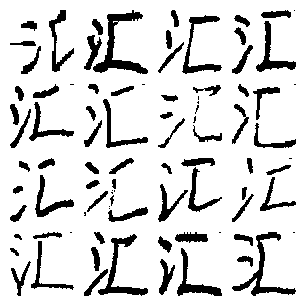 汇汇汇汇
汇汇汇汇
汇汇汇汇
汇汇汇汇